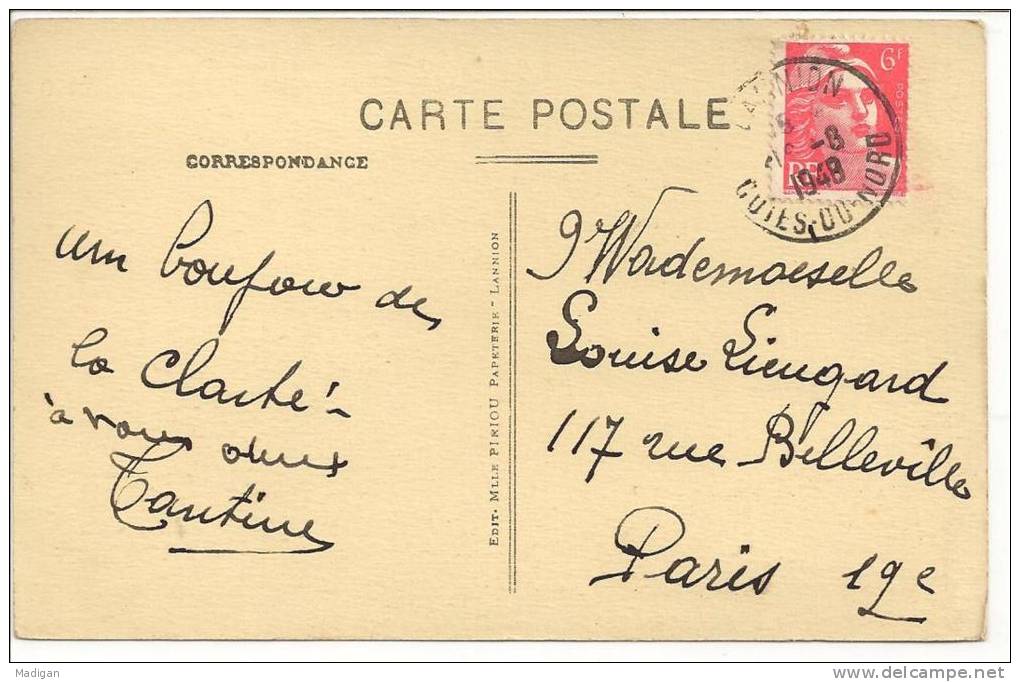 CARTE POSTALE
CORRESPONDANCE
6F
POSTES
RF
LANNION
-8
1948
COTES-DU-NORD
un bonjour de
la Clarté -
à vous deux
Tantine
EDIT. MLLE PIRIOU PAPETERIE - LANNION
Mademoiselle
Louise Liengard
117 rue Belleville
Paris 19e
Madigan
www.delcampe.net